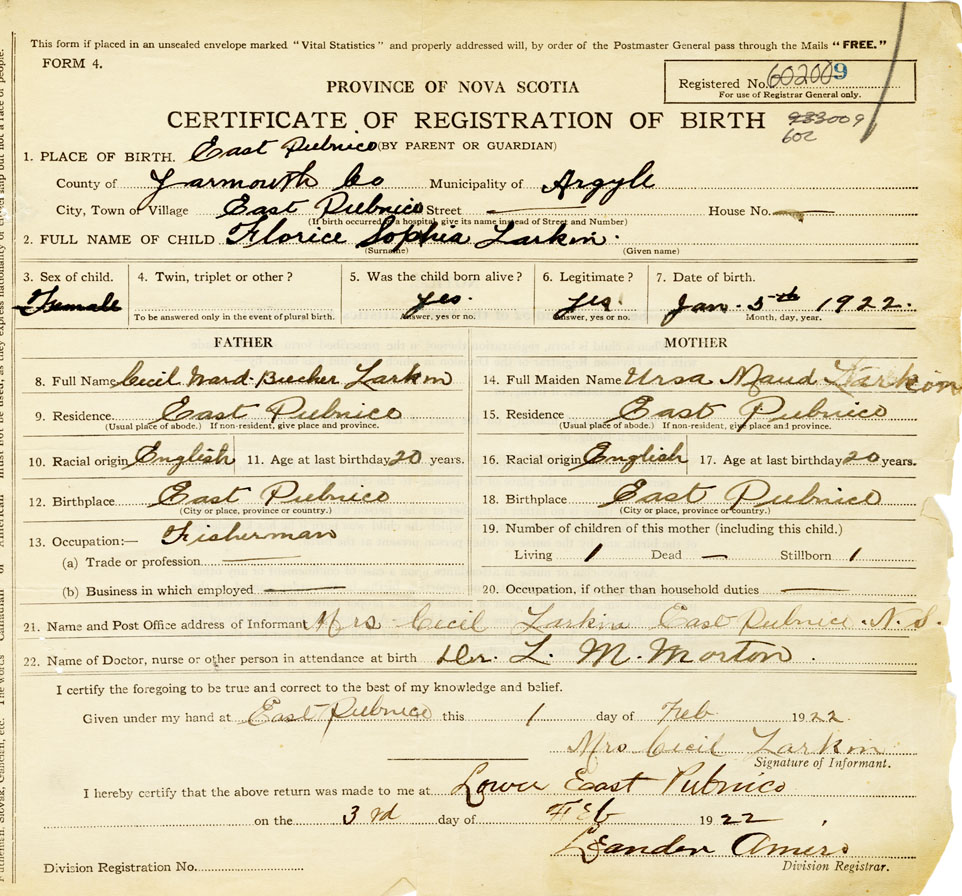 This form if placed in an unsealed envelope marked "Vital Statistics" and properly addressed will, by order of the Postmaster General pass through the Mails "FREE."
FORM 4.
PROVINCE OF NOVA SCOTIA
Registered No. 602009
For use of Registrar General only.
CERTIFICATE OF REGISTRATION OF BIRTH 933009
602
(BY PARENT OR GUARDIAN)
1. PLACE OF BIRTH. East Pubnico
County of Yarmouth Co Municipality of Argyle
City, Town or Village East Pubnico Street — House No. —
(If birth occurred in a hospital, give its name instead of Street and Number)
2. FULL NAME OF CHILD Florice Sophia Larkin.
(Surname) (Given name)
3. Sex of child. 4. Twin, triplet or other? 5. Was the child born alive? 6. Legitimate? 7. Date of birth.
Female yes. yes Jan. 5th 1922.
To be answered only in the event of plural birth. Answer, yes or no. Answer, yes or no. Month, day, year.
FATHER MOTHER
8. Full Name Cecil Ward Larkin 14. Full Maiden Name Ursa Maud Larkin
9. Residence East Pubnico 15. Residence East Pubnico
(Usual place of abode.) If non-resident, give place and province. (Usual place of abode.) If non-resident, give place and province.
10. Racial origin English 11. Age at last birthday 20 years. 16. Racial origin English 17. Age at last birthday 20 years.
12. Birthplace East Pubnico 18. Birthplace East Pubnico
(City or place, province or country.) (City or place, province or country.)
13. Occupation:— Fisherman 19. Number of children of this mother (including this child.)
(a) Trade or profession — Living 1 Dead — Stillborn 1
(b) Business in which employed — 20. Occupation, if other than household duties —
21. Name and Post Office address of Informant Mrs Cecil Larkin East Pubnico. N.S.
22. Name of Doctor, nurse or other person in attendance at birth Dr. L. M. Morton.
I certify the foregoing to be true and correct to the best of my knowledge and belief.
Given under my hand at East Pubnico this 1 day of Feb 1922.
Mrs Cecil Larkin
Signature of Informant.
I hereby certify that the above return was made to me at Lower East Pubnico
on the 3rd day of Feb 1922
Leander Amiro
Division Registration No. Division Registrar.